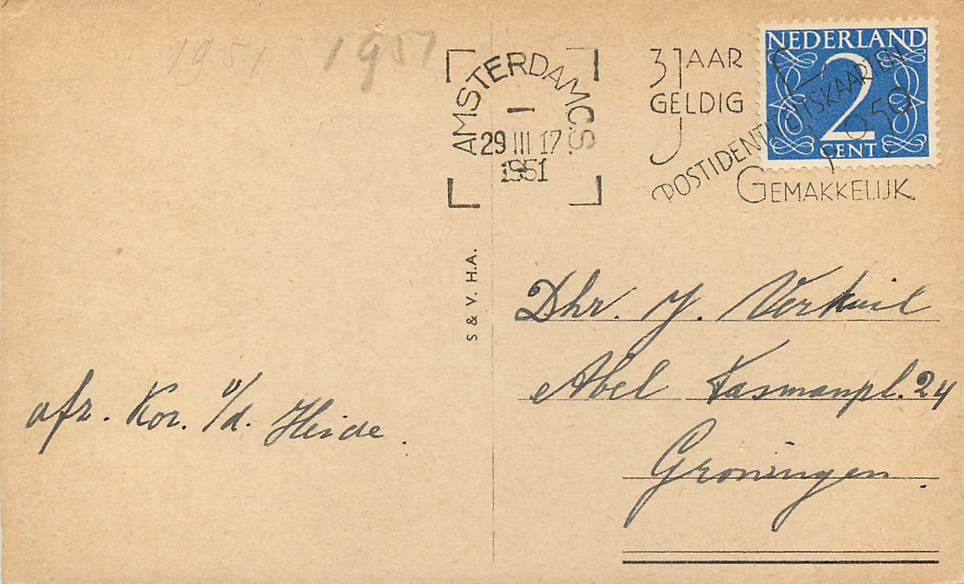 1951 1951
AMSTERDAM C.S.
1
29 III 17
1951
3 JAAR
GELDIG
POSTIDENTITEITSKAARTEN
GEMAKKELIJK
NEDERLAND
2
CENT
S & V. H.A.
Dhr. J. Verkuil
Abel Tasmanpl. 24
Groningen.
afz. Kor. v/d. Heide.